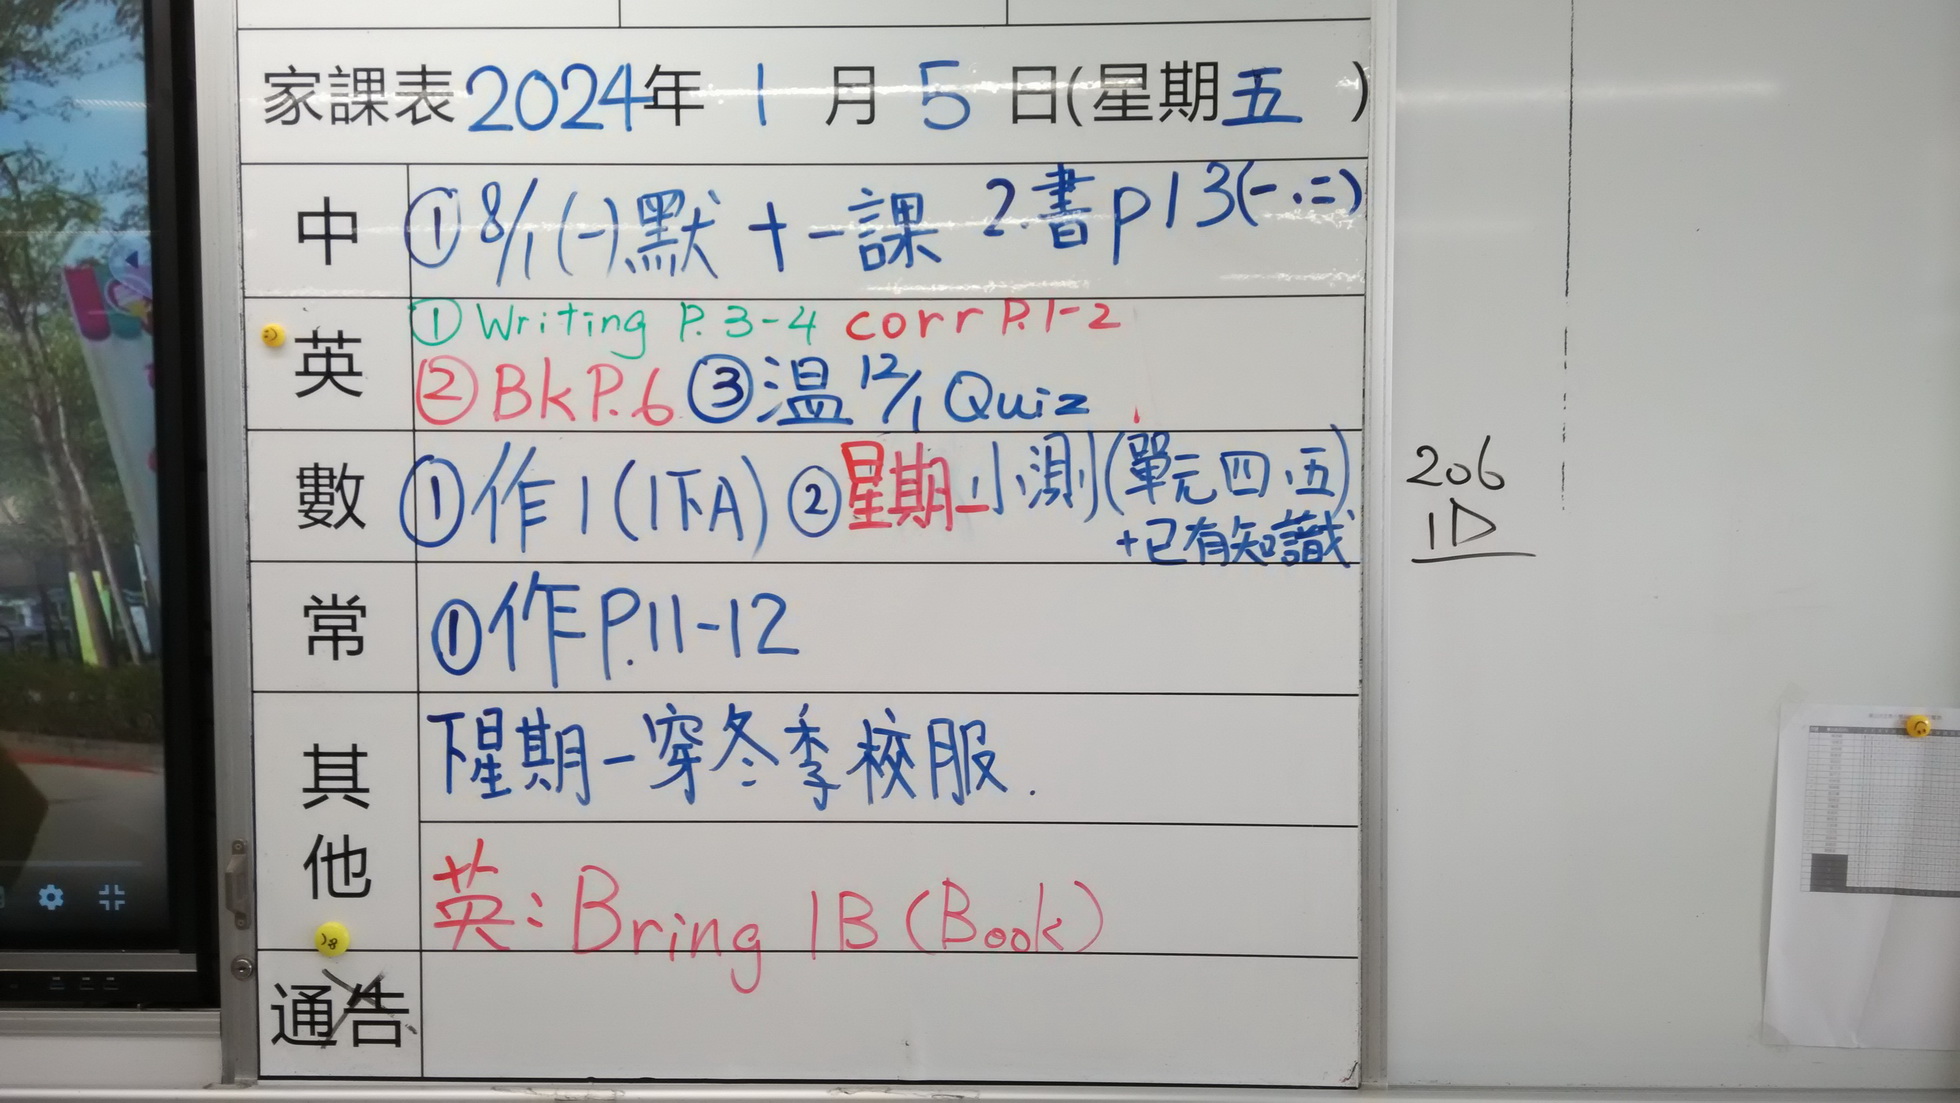 家課表2024年 1 月 5 日(星期五 )
中 ①8/1(一)默十一課 2.書p13(一.二)
英 ①Writing P.3-4 corr P.1-2
②BkP.6 ③温12/1 Quiz
數 ①作1(1下A) ②星期一小測(單元四.五)
+已有知識
常 ①作P.11-12
其他 下星期一穿冬季校服.
英: Bring 1B (Book)
通告
206
1D